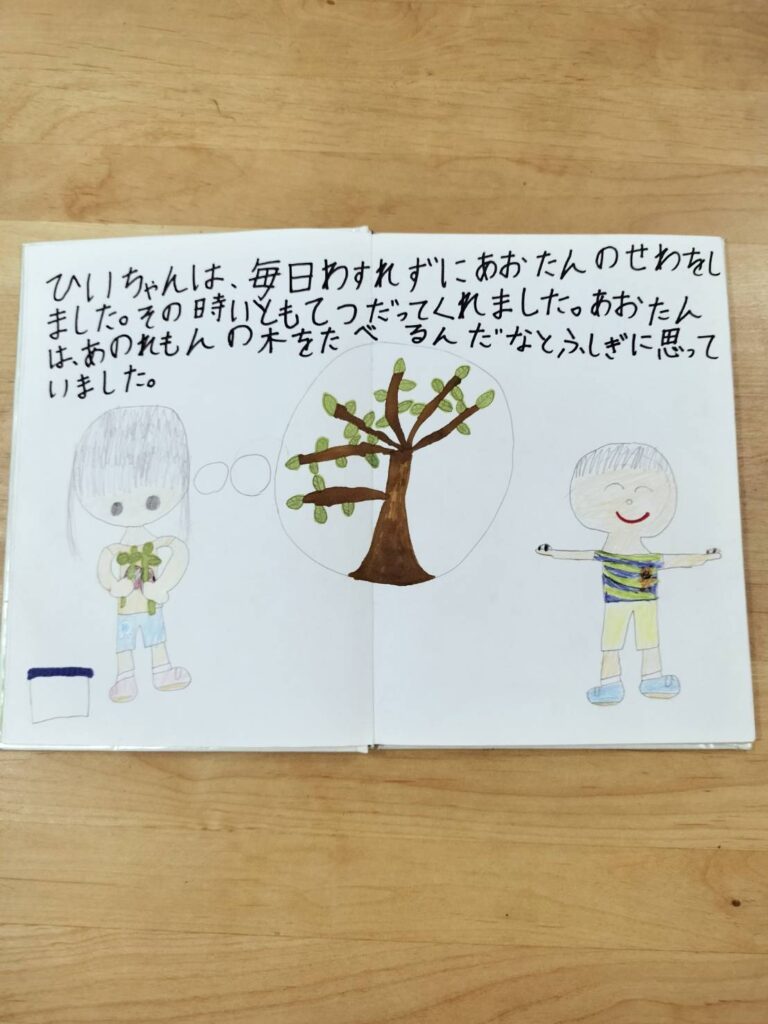 ひいちゃんは、毎日わすれずにあおたんのせわをし
ました。その時いともてつだってくれました。あおたん
は、あのれもんの木をたべるんだなと、ふしぎに思って
いました。